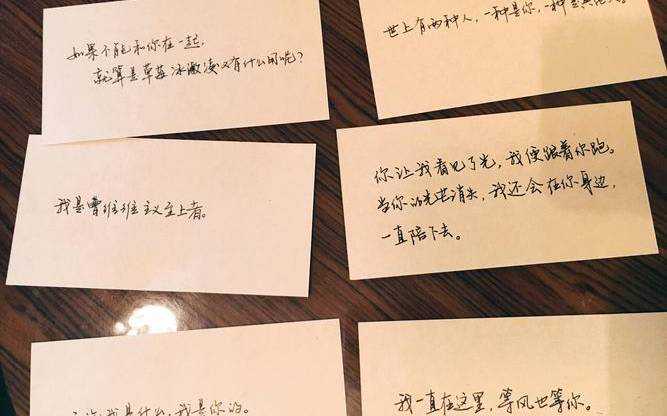 如果不能和你在一起，
就算是草莓冰激凌又有什么用呢？
世上有两种人，一种是你，一种是
我是曹班班主义至上者。
你让我看见了光，我便跟着你跑。
当你的光芒消失，我还会在你身边，
一直陪下去。
我是什么，我是你的。
我一直在这里，等风也等你。